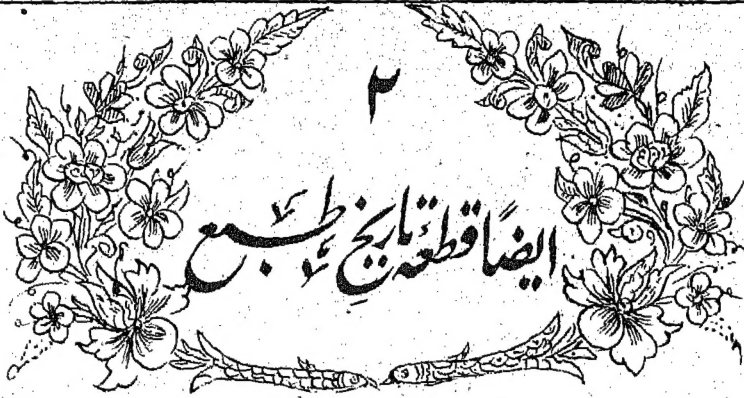 ٢
ایضاً قطعۂ تاریخِ طبع